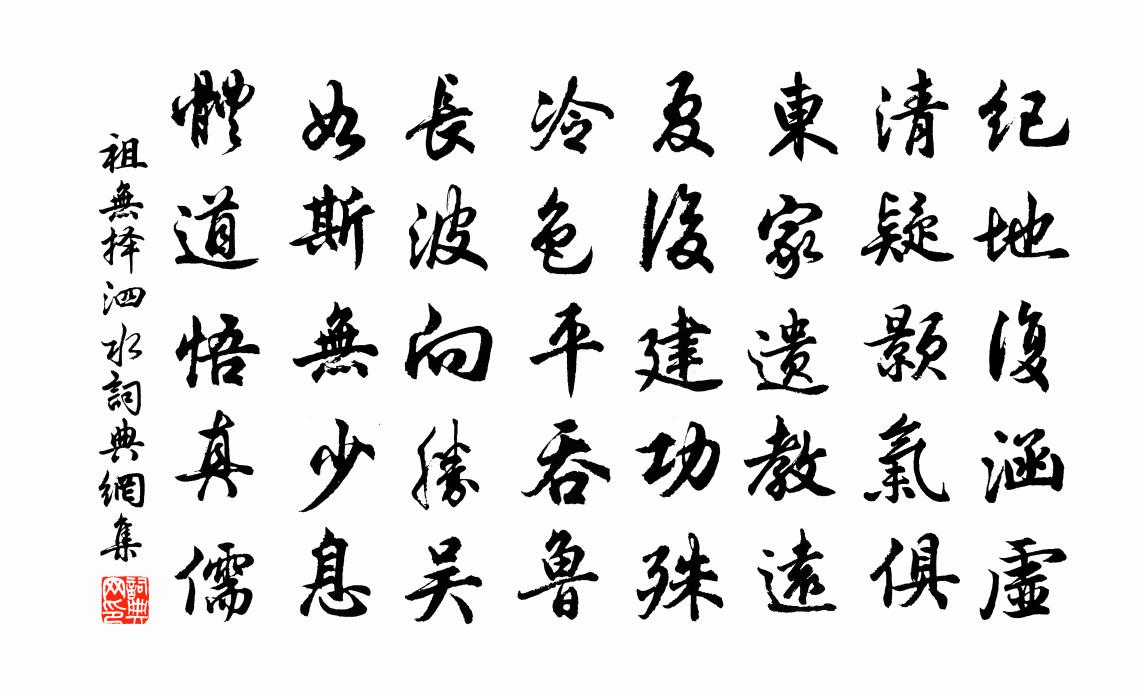 纪地復涵虛
清疑顥氣俱
東家遗教遠
夏後建功殊
冷色平吞魯
長波向勝吴
如斯無少息
體道悟真儒
祖無择泗水詞典網集
詞典网印